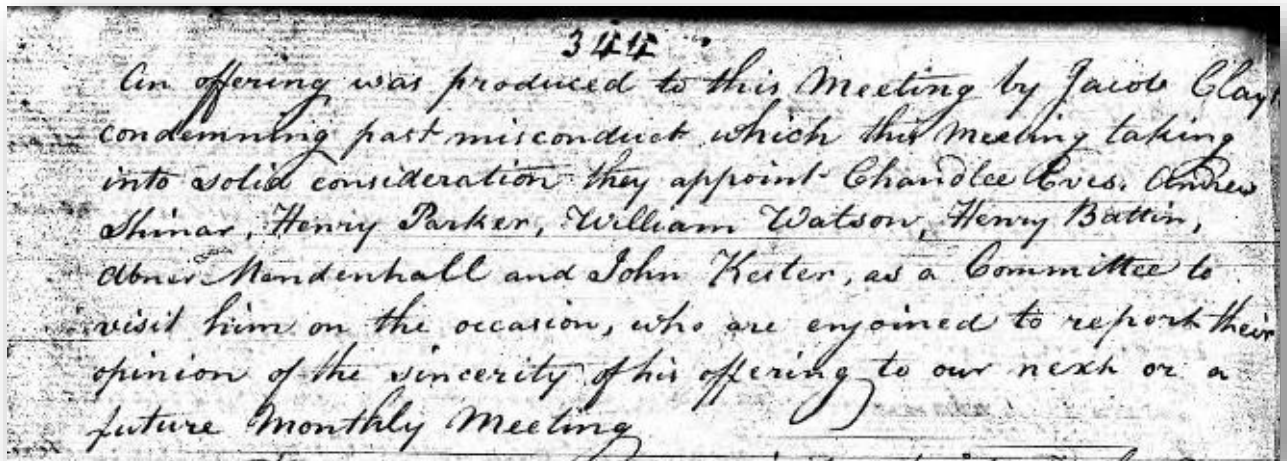 344
An offering was produced to this Meeting by Jacob Clay
condemning past misconduct which this Meeting taking
into solid consideration they appoint Chandlee Eves. Andrew
Shinar, Henry Parker, William Watson, Henry Battin,
Abner Mendenhall and John Kester, as a Committee to
visit him on the occasion, who are enjoined to report their
opinion of the sincerity of his offering to our next or a
future Monthly Meeting